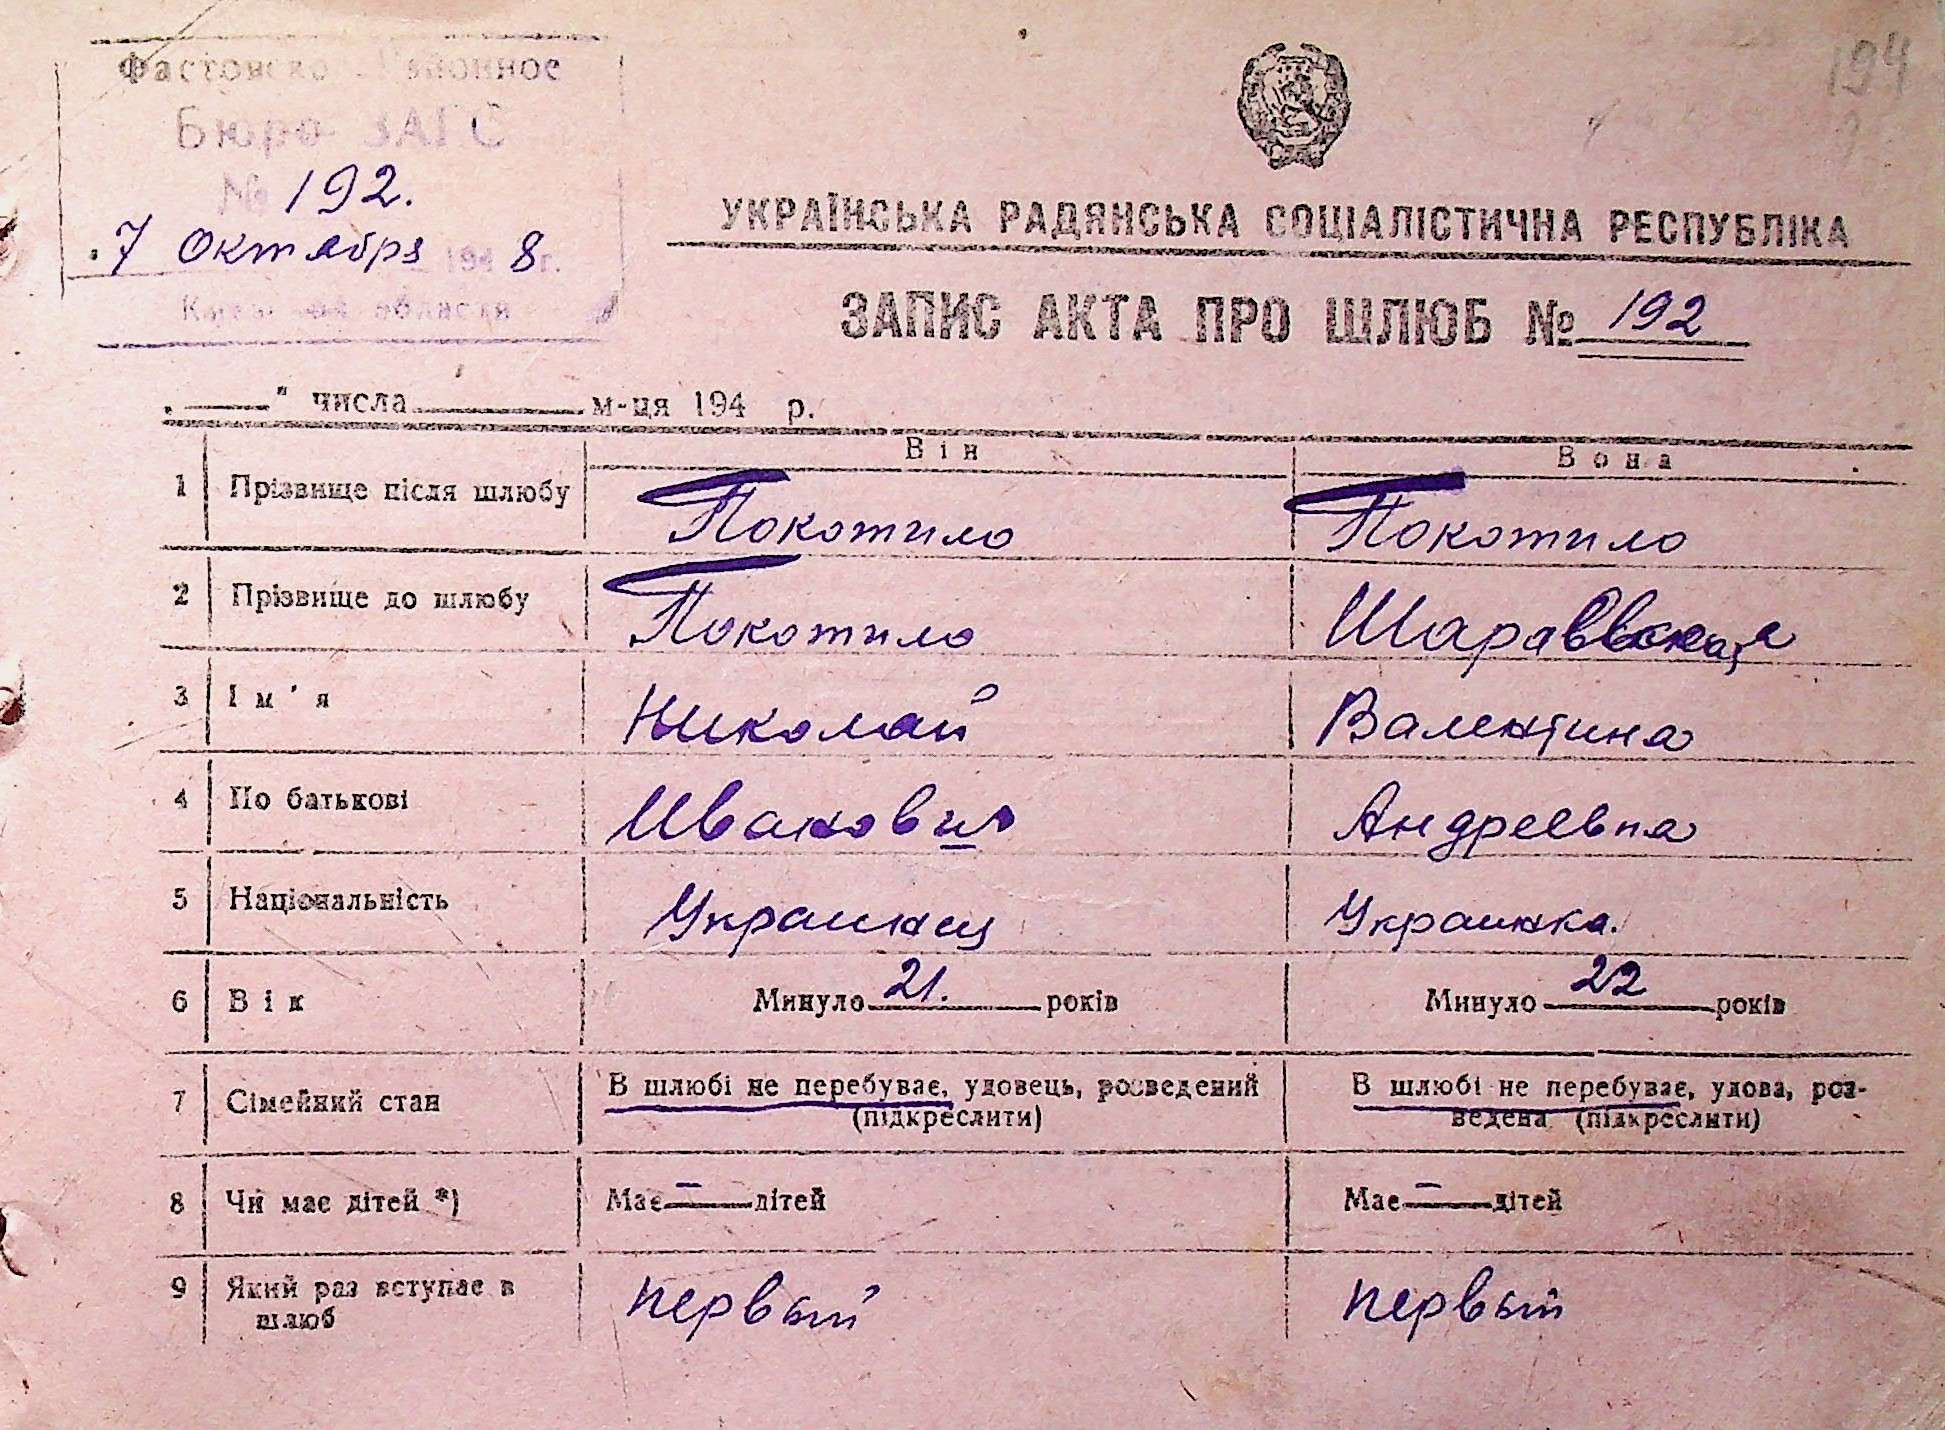 194
Фастовское Районное
Бюро ЗАГС
№ 192.
7 октября 1948 г.
Киевской области
УКРАЇНСЬКА РАДЯНСЬКА СОЦІАЛІСТИЧНА РЕСПУБЛІКА
ЗАПИС АКТА ПРО ШЛЮБ № 192
" числа м-ця 194 р.
Він Вона
1 Прізвище після шлюбу Покотило Покотило
2 Прізвище до шлюбу Покотило
3 Ім'я Николай Валентина
4 По батькові Иванович Андреевна
5 Національність Украинец Украинка.
6 Вік Минуло 21. років Минуло 22 років
7 Сімейний стан В шлюбі не перебуває, удовець, розведений (підкреслити) В шлюбі не перебуває, удова, роз-
ведена (підкреслити)
8 Чи має дітей *) Має — дітей Має — дітей
9 Який раз вступає в шлюб первый первый